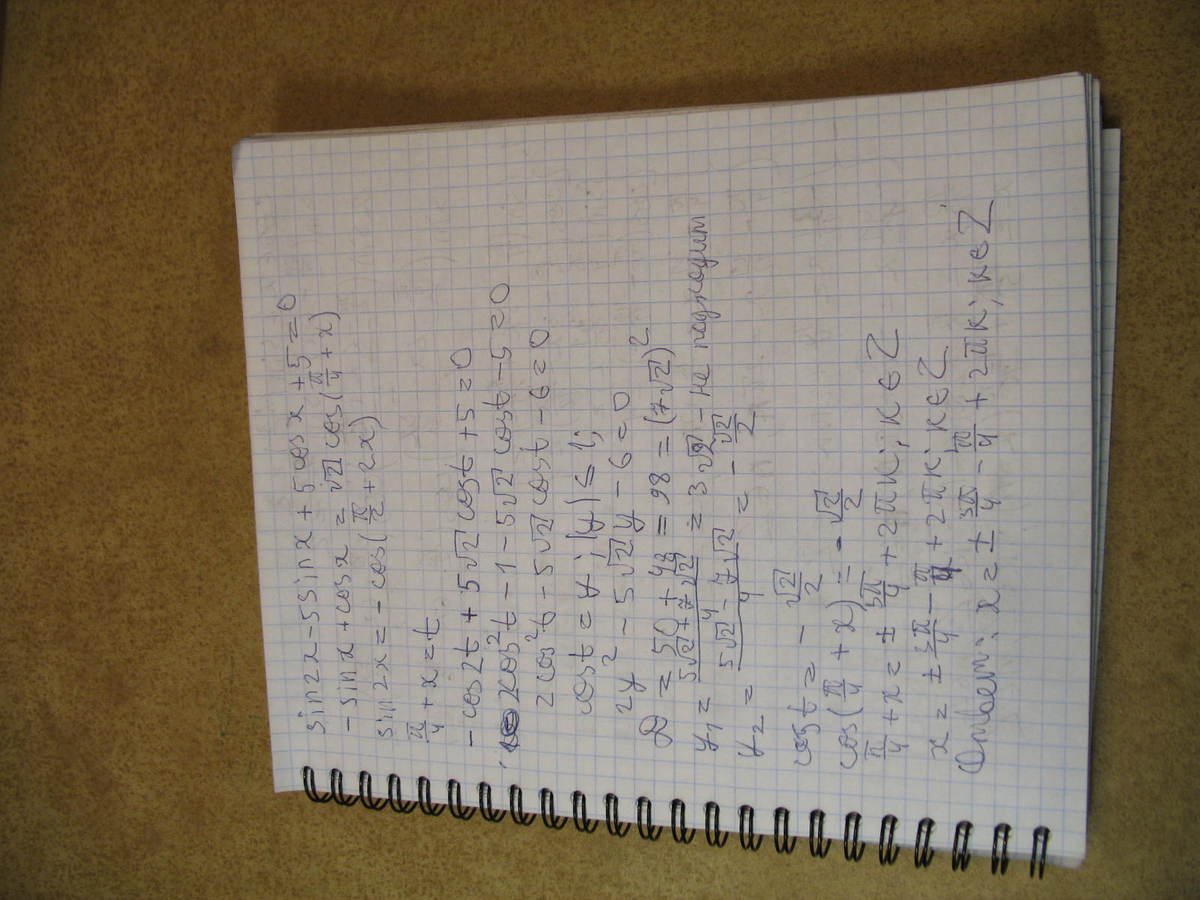 sin2x - 5sinx + 5cosx + 5 = 0
- sinx + cosx = √2 cos(π/4 + x)
sin2x = - cos(π/2 + 2x)
π/4 + x = t
- cos2t + 5√2 cost + 5 = 0
2cos²t - 1 - 5√2 cost - 5 = 0
2cos²t - 5√2 cost - 6 = 0
cost = y; |y| ≤ 1;
2y² - 5√2 y - 6 = 0
D = 50 + 48 = 98 = (7√2)²
y₁ = (5√2 + 7√2)/4 = 3√2 - не подходит
y₂ = (5√2 - 7√2)/4 = - √2/2
cost = - √2/2
cos(π/4 + x) = - √2/2
π/4 + x = ± 3π/4 + 2πk; k ∈ Z
x = ± 3π/4 - π/4 + 2πk; k ∈ Z
Ответ: x = ± 3π/4 - π/4 + 2πk; k ∈ Z